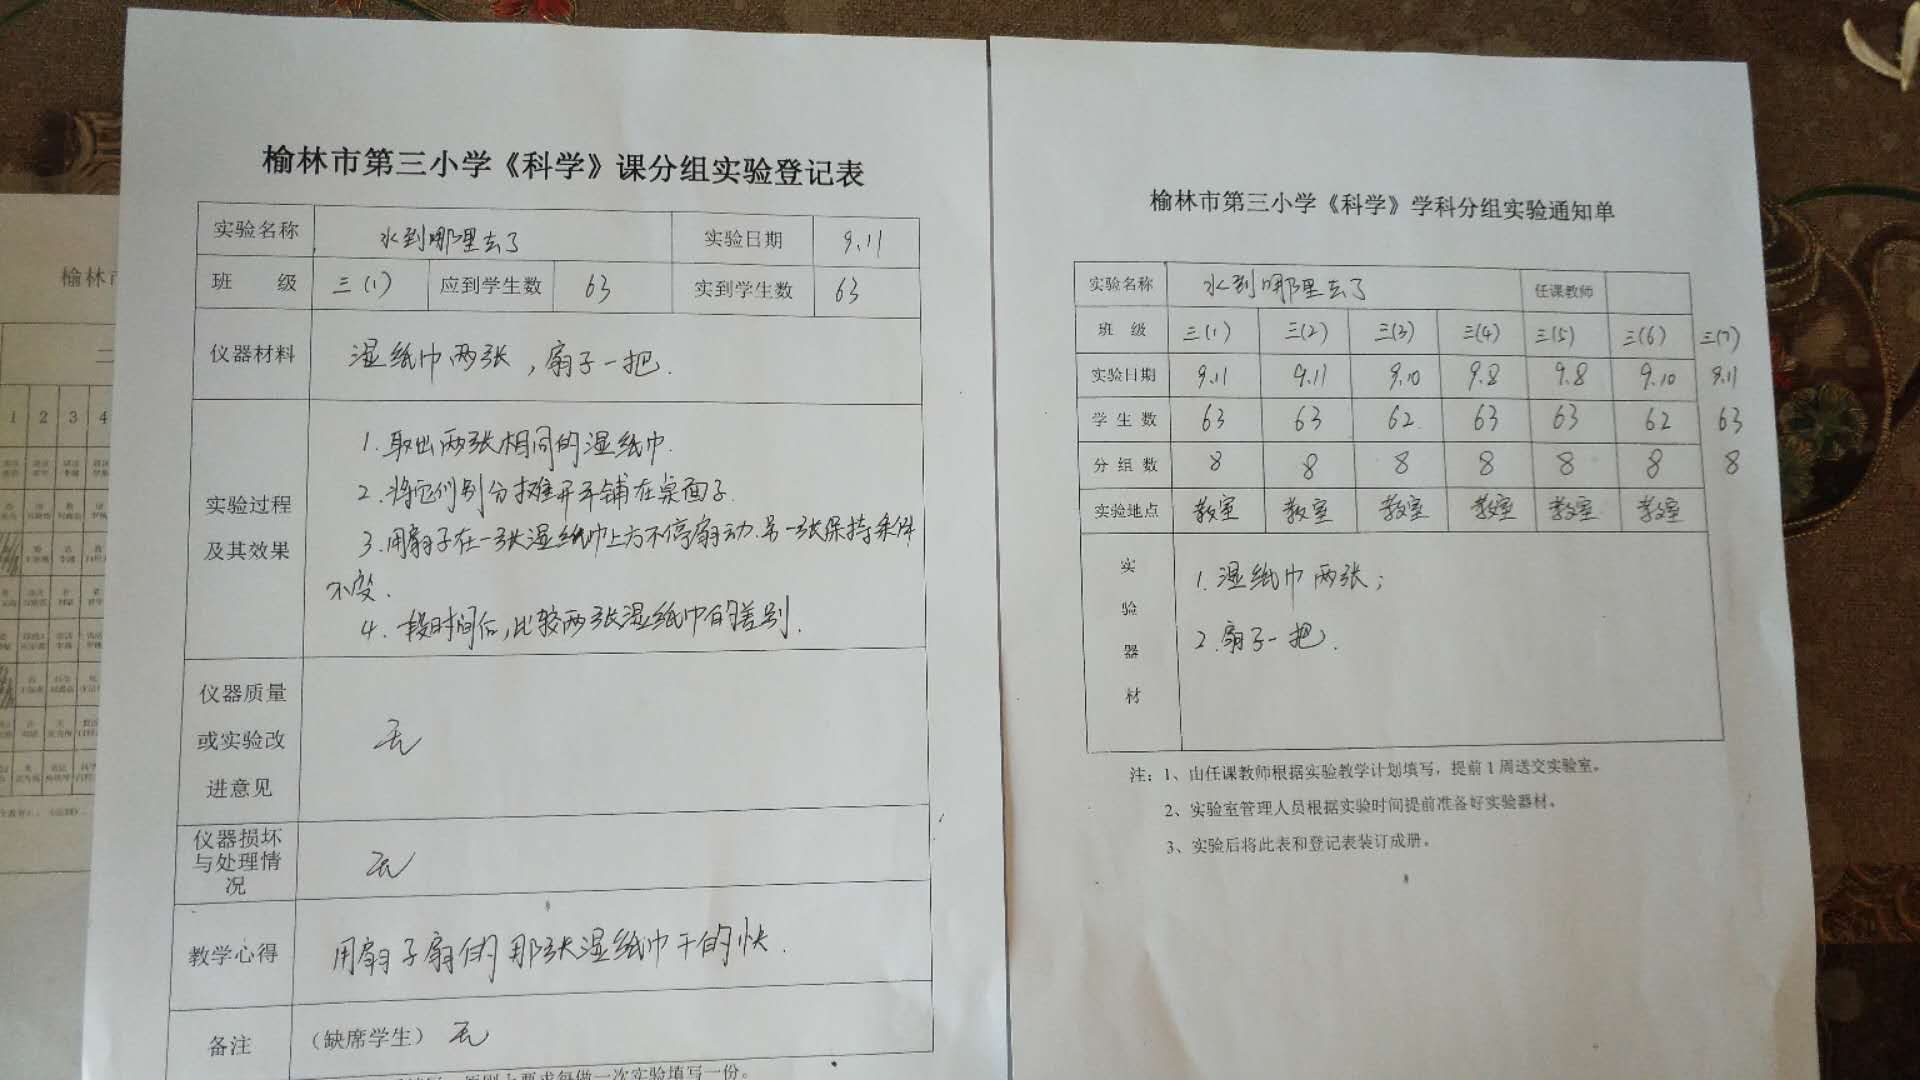 榆林市第三小学《科学》课分组实验登记表
实验名称 水到哪里去了 实验日期 9.11
班 级 三(1) 应到学生数 63 实到学生数 63
仪器材料 湿纸巾两张，扇子一把.
实验过程及其效果
1.取出两张相同的湿纸巾.
2.将它们别分摊开平铺在桌面子.
3.用扇子在一张湿纸巾上方不停扇动.另一张保持条件
不变.
4.一段时间后,比较两张湿纸巾的差别.
仪器质量
或实验改 无
进意见
仪器损坏
与处理情 无
况
教学心得 用扇子扇的那张湿纸巾干的快.
备注 （缺席学生） 无
榆林市第三小学《科学》学科分组实验通知单
实验名称 水到哪里去了 任课教师
班 级 三(1) 三(2) 三(3) 三(4) 三(5) 三(6) 三(7)
实验日期 9.11 9.11 9.10 9.8 9.8 9.10 9.11
学 生 数 63 63 62 63 63 62 63
分 组 数 8 8 8 8 8 8 8
实验地点 教室 教室 教室 教室 教室 教室
实验器材
1.湿纸巾两张;
2.扇子一把.
注：1、由任课教师根据实验教学计划填写，提前1周送交实验室。
2、实验室管理人员根据实验时间提前准备好实验器材。
3、实验后将此表和登记表装订成册。
榆林市
1 2 3 4